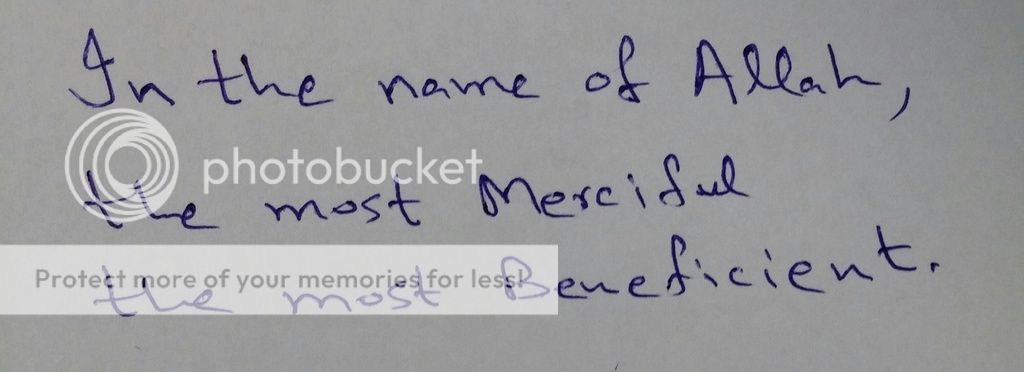 In the name of Allah,
photobucket
the most Merciful
Protect more of your memories for less!
the most Beneficient.